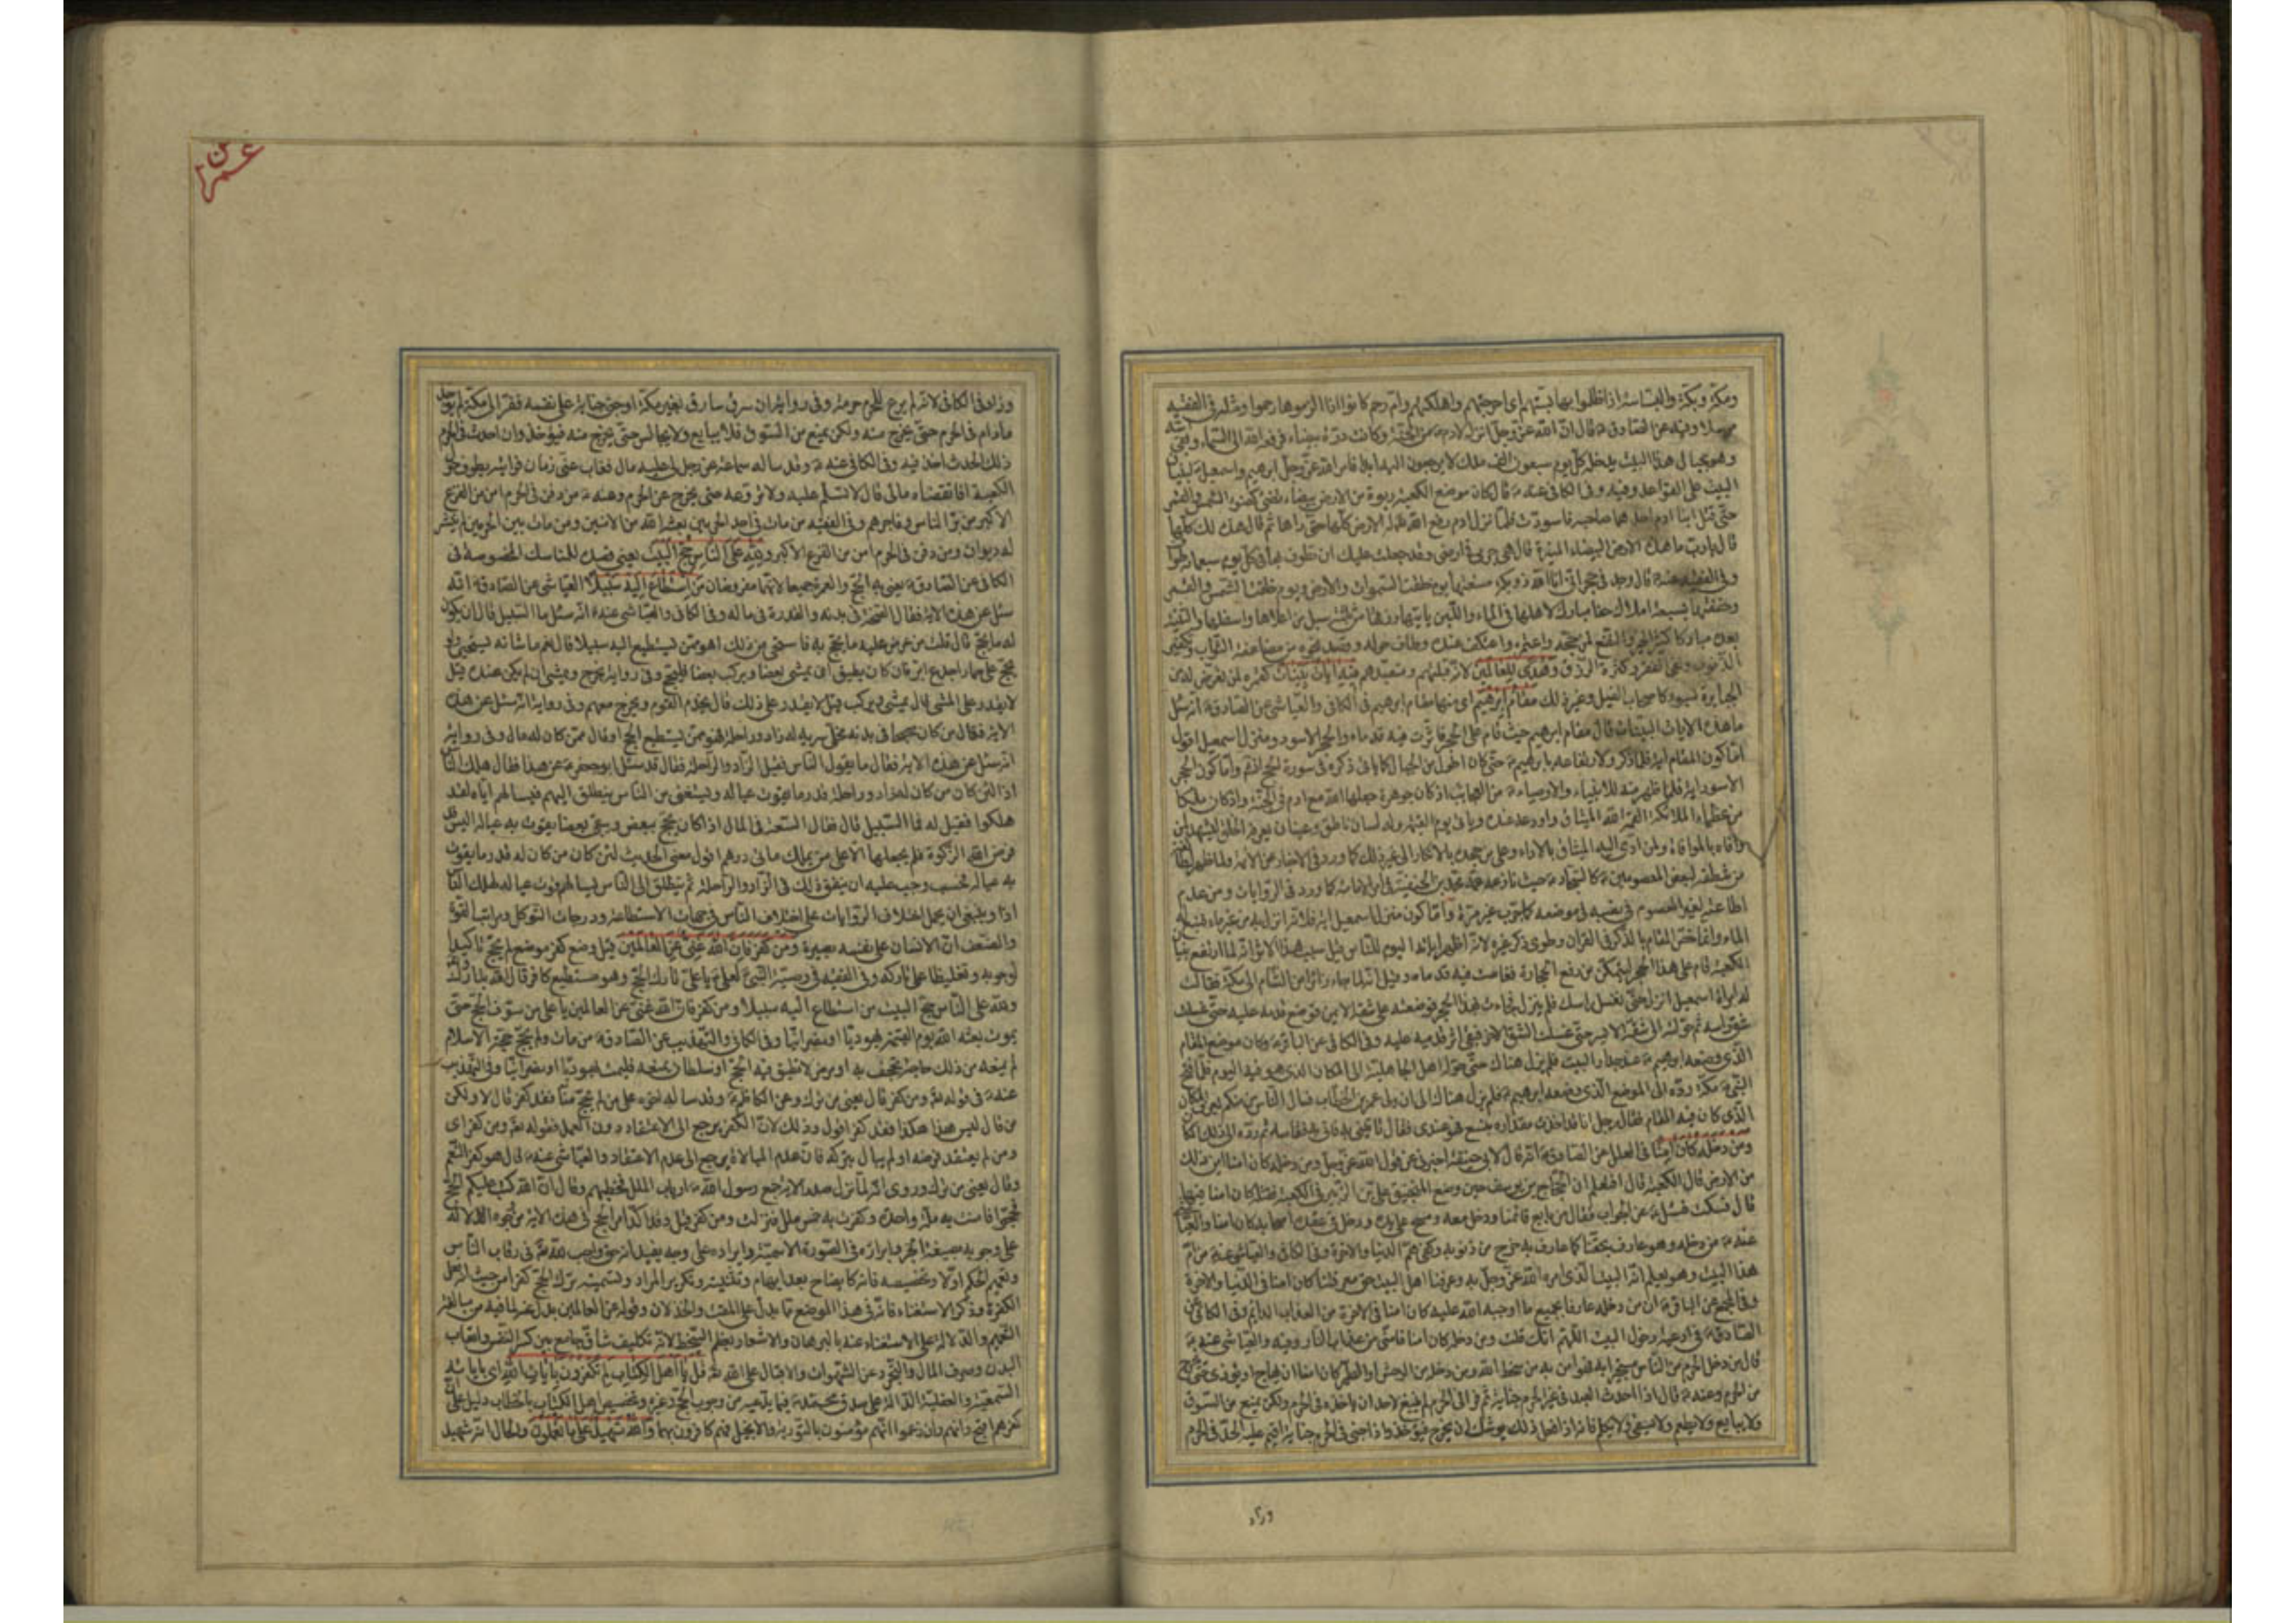 ومكة وبكة والبساسة اذا ظلموا بها بستهم اى اخرجتهم واهلكتهم وام رحم كانوا اذا لزموها رحموا ومثله فى الفقيه
مرسلا وفيه عن الصادق ان الله عز وجل انزله لادم من الجنة وكانت درة بيضاء فرفعه الله الى السماء وبقى اسه
وهو بحيال هذا البيت يدخله كل يوم سبعون الف ملك لا يرجعون اليه ابدا فامر الله عز وجل ابرهيم واسمعيل ببنيان
البيت على القواعد وفيه وفى الكافى عنه قال كان موضع الكعبة ربوة من الارض بيضاء تضئ كضوء الشمس والقمر
حتى قتل ابنا ادم احدهما صاحبه فاسودت فلما نزل ادم رفع الله له الارض كلها حتى راها ثم قال هذه لك كلها
قال يا رب ما هذه الارض البيضاء المنيرة قال هى فى ارضى وقد جعلت عليك ان تطوف بها فى كل يوم سبعمائة طواف
وفى الفقيه عنه قال وجد فى حجر انى انا الله ذو بكة صنعتها يوم خلقت السموات والارض ويوم خلقت الشمس والقمر
وحففتها بسبعة املاك حفا مبارك لاهلها فى الماء واللبن ياتيها رزقها من ثلثة سبل من اعلاها واسفلها والثنية
مباركا كثير الخير والنفع لمن حجه واعتمره واعتكف عنده وطاف حوله وقصد نحوه من مضاعفة الثواب وتكفير
الذنوب ونفى الفقر وكثرة الرزق وهدى للعالمين لانه قبلتهم ومتعبدهم فيه ايات بينات كقهره لمن تعرض له من
الجبابرة بسوء كاصحاب الفيل وغير ذلك مقام ابرهيم اى منها مقام ابرهيم فى الكافى والعياشى عن الصادق انه سئل
ما هذه الايات البينات قال مقام ابرهيم حيث قام على الحجر فاثرت فيه قدماه والحجر الاسود ومنزل اسمعيل اقول
اما كون المقام اية فلما ذكر ولارتفاعه بابرهيم حتى كان اطول من الجبال كما ياتى ذكره فى سورة الحج واما كون الحجر
الاسود اية فلما ظهر منه للانبياء والاوصياء من العجائب اذ كان جوهرة جعلها الله مع ادم فى الجنة واذ كان ملكا
من عظماء الملائكة القمه الله الميثاق واودعه عنده وياتى يوم القيمة وله لسان ناطق وعينان يعرفه الخلق يشهد لمن
وافاه بالموافاة ولمن ادى اليه الميثاق بالاداء وعلى من جحده بالانكار الى غير ذلك كما ورد فى الاخبار عن الائمة ولما ظهر
من نطقه لبعض المعصومين كالسجاد حيث نازعه عمه محمد بن الحنفية فى امر الامامة كما ورد فى الروايات ومن عدم
اطاعته لغير المعصوم فى نصبه فى موضعه كما جرب غير مرة واما كون منزل اسمعيل اية فلانه انزل به من غير ماء فنبع له
الماء وانما خص المقام بالذكر فى القران وطوى ذكر غيره لانه اظهر اياته اليوم للناس قيل سبب هذا الاثر انه لما ارتفع بنيان
الكعبة قام على هذا الحجر ليتمكن من رفع الحجارة فغاصت فيه قدماه وقيل انه لما جاء زائرا من الشام الى مكة فقالت
له امراة اسمعيل انزل حتى نغسل راسك فلم ينزل فجاءت بهذا الحجر فوضعته على شقه الايمن فوضع قدمه عليه حتى غسلت
شق راسه ثم حولته الى شقه الايسر حتى غسلت الشق الاخر فبقى اثر قدميه عليه وفى الكافى عن الباقر وكان موضع المقام
الذى وضعه ابرهيم عند جدار البيت فلم يزل هناك حتى حوله اهل الجاهلية الى المكان الذى هو فيه اليوم فلما فتح
النبى مكة رده الى الموضع الذى وضعه ابرهيم فلم يزل هناك الى ان ولى عمر بن الخطاب فسال الناس من منكم يعرف المكان
الذى كان فيه المقام فقال رجل انا قد اخذت مقداره بنسع فهو عندى فقال تاتينى به فاتاه به فقاسه ثم رده الى ذلك المكان
ومن دخله كان امنا فى العلل عن الصادق انه قال لابى حنيفة اخبرنى عن قول الله عز وجل ومن دخله كان امنا اين ذلك
من الارض قال الكعبة قال افتعلم ان الحجاج بن يوسف حين وضع المنجنيق على ابن الزبير فى الكعبة فقتله كان امنا فيها
قال فسكت فسئل عن الجواب فقال من بايع قائمنا ودخل معه ومسح على يده ودخل فى عقد اصحابه كان امنا والعياشى
عنه من دخله وهو عارف بحقنا كما هو عارف به خرج من ذنوبه وكفى هم الدنيا والاخرة وفى الكافى والعياشى عنه من ام
هذا البيت وهو يعلم انه البيت الذى امره الله عز وجل به وعرفنا اهل البيت حق معرفتنا كان امنا فى الدنيا والاخرة
وفى المجمع عن الباقر ان من دخله عارفا بجميع ما اوجبه الله عليه كان امنا فى الاخرة من العذاب الدائم وفى الكافى عن
الصادق فى ادعية دخول البيت اللهم انك قلت ومن دخله كان امنا فامنى من عذاب النار وفيه والعياشى عنه
قال من دخل الحرم من الناس مستجيرا به فهو امن من سخط الله ومن دخله من الوحش والطير كان امنا ان يهاج او يؤذى حتى يخرج
من الحرم وعنه قال اذا احدث العبد فى غير الحرم جناية ثم فر الى الحرم لم ينبغ لاحد ان ياخذه فى الحرم ولكن يمنع من السوق
ولا يبايع ولا يطعم ولا يسقى ولا يكلم فانه اذا فعل ذلك يوشك ان يخرج فيؤخذ واذا جنى فى الحرم جناية اقيم عليه الحد فى الحرم
وزاد
وزاد فى الكافى لانه لم يرع للحرم حرمة وفى رواية ان سرق سارق بغير مكة او جنى جناية على نفسه ففر الى مكة لم يؤخذ
مادام فى الحرم حتى يخرج منه ولكن يمنع من السوق فلا يبايع ولا يجالس حتى يخرج منه فيؤخذ وان احدث فى الحرم
ذلك الحدث اخذ فيه وفى الكافى عنه وقد ساله سماعة عن رجل لى عليه مال فغاب عنى زمان فرايته يطوف حول
الكعبة افاتقضاه مالى قال لا لا تسلم عليه ولا تروعه حتى يخرج عن الحرم وعنه من دفن فى الحرم امن من الفزع
الاكبر من بر الناس وفاجرهم وفى الفقيه من مات فى احد الحرمين بعثه الله من الامنين ومن مات بين الحرمين لم ينشر
له ديوان ومن دفن فى الحرم امن من الفزع الاكبر ولله على الناس حج البيت يعنى قصده للمناسك المخصوصة فى
الكافى عن الصادق يعنى به الحج والعمرة جميعا لانهما مفروضان من استطاع اليه سبيلا العياشى عن الصادق انه
سئل عن هذه الاية فقال الصحة فى بدنه والقدرة فى ماله وفى الكافى والعياشى عنه انه سئل ما السبيل قال ان يكون
له ما يحج قال قلت من عرض عليه ما يحج به فاستحيى من ذلك اهو ممن يستطيع اليه سبيلا قال نعم ما شانه يستحيى ولو
يحج على حمار اجدع ابتر فان كان يطيق ان يمشى بعضا ويركب بعضا فليحج وفى رواية يخرج ويمشى ان لم يكن عنده قيل
لا يقدر على المشى قال يمشى ويركب قيل لا يقدر على ذلك قال يخدم القوم ويخرج معهم وفى رواية انه سئل عن هذه
الاية فقال من كان صحيحا فى بدنه مخلى سربه له زاد وراحلة فهو ممن يستطيع الحج او قال ممن كان له مال وفى رواية
انه سئل عن هذه الاية فقال ما يقول الناس فقيل الزاد والراحلة فقال قد سئل ابو جعفر عن هذا فقال هلك الناس
اذا لئن كان من كان له زاد وراحلة قدر ما يقوت عياله ويستغنى عن الناس ينطلق اليهم فيسالهم اياه لقد
هلكوا فقيل له فما السبيل قال فقال السعة فى المال اذا كان يحج ببعض ويبقى بعضا يقوت به عياله اليس قد
فرض الله الزكوة فلم يجعلها الا على من يملك مائتى درهم اقول معنى الحديث لئن كان من كان له قدر ما يقوت
به عياله فحسب وجب عليه ان ينفق ذلك فى الزاد والراحلة ثم ينطلق الى الناس يسالهم قوت عياله لهلك الناس
اذا وينبغى ان يحمل اختلاف الروايات على اختلاف الناس فى جهات الاستطاعة ودرجات التوكل ومراتب القوة
والضعف ان الانسان على نفسه بصيرة ومن كفر فان الله غنى عن العالمين قيل وضع كفر موضع لم يحج تاكيدا
لوجوبه وتغليظا على تاركه وفى الفقيه فى وصية النبى لعلى يا على تارك الحج وهو مستطيع كافر قال الله تبارك
ولله على الناس حج البيت من استطاع اليه سبيلا ومن كفر فان الله غنى عن العالمين يا على من سوف الحج حتى
يموت بعثه الله يوم القيمة يهوديا او نصرانيا وفى الكافى والتهذيب عن الصادق من مات ولم يحج حجة الاسلام
لم يمنعه من ذلك حاجة تجحف به او مرض لا يطيق فيه الحج او سلطان يمنعه فليمت يهوديا او نصرانيا وفى التهذيب
عنه فى قوله ومن كفر قال يعنى من ترك وعن الكاظم وقد ساله اخوه على من لم يحج منا فقد كفر قال لا ولكن
من قال ليس هذا هكذا فقد كفر اقول وذلك لان الكفر يرجع الى الاعتقاد دون العمل فقوله ومن كفر اى
ومن لم يعتقد فرضه او لم يبال بتركه فان عدم المبالاة يرجع الى عدم الاعتقاد والعياشى عنه قال هو كفر النعم
وقال يعنى من ترك وروى انه لما نزل صدر الاية جمع رسول الله ارباب الملل فخطبهم وقال ان الله كتب عليكم الحج
فحجوا فامنت به ملة واحدة وكفرت به خمس ملل فنزلت ومن كفر قيل وقد اكد امر الحج فى هذه الاية من وجوه الدلالة
على وجوبه بصيغة الخبر وابرازه فى الصورة الاسمية وايراده على وجه يفيد انه حق واجب لله فى رقاب الناس
وتعميم الحكم اولا وتخصيصه فانه كايضاح بعد ابهام وتثنية وتكرير المراد وتسميته ترك الحج كفرا من حيث انه فعل
الكفرة وذكر الاستغناء فانه فى هذا الموضع مما يدل على المقت والخذلان وقوله عن العالمين بدل عنه لما فيه من مبالغة
التعميم والدلالة على الاستغناء عنه بالبرهان والاشعار بعظم السخط لانه تكليف شاق جامع بين كسر النفس واتعاب
البدن وصرف المال والتجرد عن الشهوات والاقبال على الله قل يا اهل الكتاب لم تكفرون بايات الله اى باياته
السمعية والعقلية الدالة على صدق محمد فيما يدعيه من وجوب الحج وغيره وتخصيص اهل الكتاب بالخطاب دليل على ان
كفرهم اقبح وانهم وان زعموا انهم مؤمنون بالتورية والانجيل فهم كافرون بهما والله شهيد على ما تعملون والحال انه شهيد